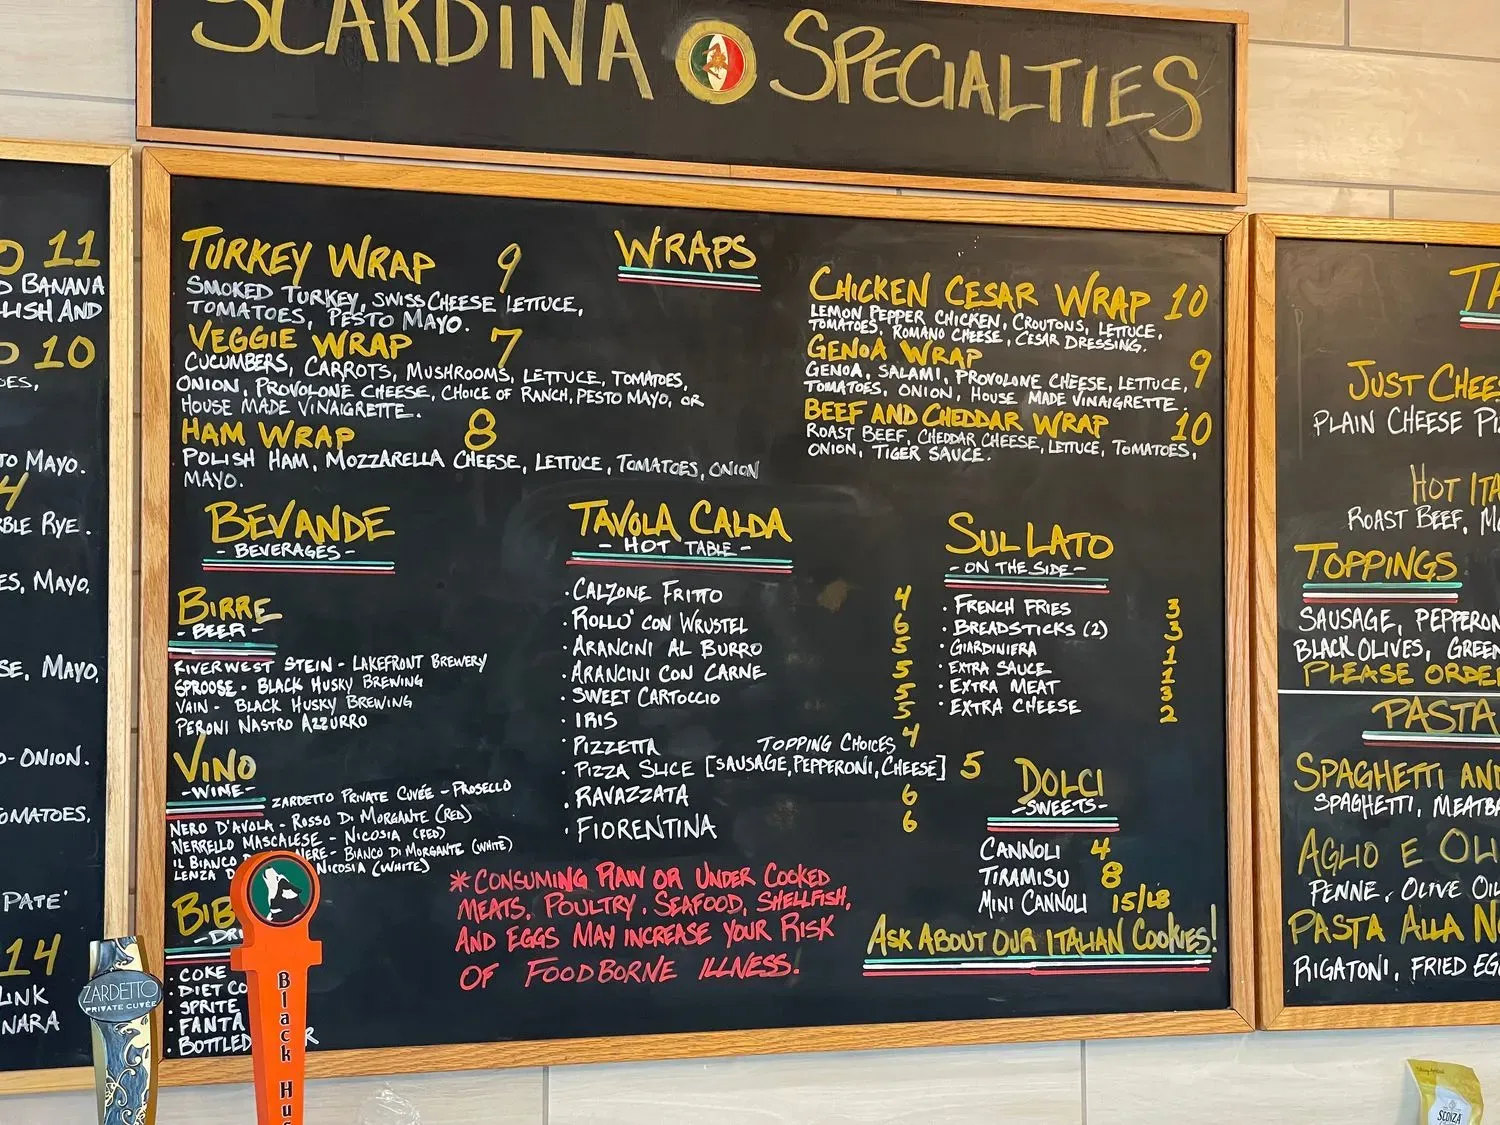 SCARDINA SPECIALTIES
11
BANANA
LISH AND
10
TO MAYO.
4
BLE RYE.
ES, MAYO,
SE, MAYO,
O-ONION.
OMATOES,
PATE'
14
LINK
NARA
WRAPS
TURKEY WRAP 9
SMOKED TURKEY, SWISS CHEESE LETTUCE,
TOMATOES, PESTO MAYO.
VEGGIE WRAP 7
CUCUMBERS, CARROTS, MUSHROOMS, LETTUCE, TOMATOES,
ONION, PROVOLONE CHEESE, CHOICE OF RANCH, PESTO MAYO, OR
HOUSE MADE VINAIGRETTE.
HAM WRAP 8
POLISH HAM, MOZZARELLA CHEESE, LETTUCE, TOMATOES, ONION
MAYO.
CHICKEN CESAR WRAP 10
LEMON PEPPER CHICKEN, CROUTONS, LETTUCE,
TOMATOES, ROMANO CHEESE, CESAR DRESSING.
GENOA WRAP 9
GENOA, SALAMI, PROVOLONE CHEESE, LETTUCE,
TOMATOES, ONION, HOUSE MADE VINAIGRETTE.
BEEF AND CHEDDAR WRAP 10
ROAST BEEF, CHEDDAR CHEESE, LETTUCE, TOMATOES,
ONION, TIGER SAUCE.
BEVANDE
- BEVERAGES -
BIRRE
- BEER -
RIVERWEST STEIN - LAKEFRONT BREWERY
SPROOSE - BLACK HUSKY BREWING
VAIN - BLACK HUSKY BREWING
PERONI NASTRO AZZURRO
VINO
- WINE -
ZARDETTO PRIVATE CUVÉE - PROSELLO
NERO D'AVOLA - ROSSO DI MORGANTE (RED)
NERRELLO MASCALESE - NICOSIA (RED)
IL BIANCO D NERE - BIANCO DI MORGANTE (WHITE)
LENZA D NICOSIA (WHITE)
BIB
- DRI
· COKE
· DIET CO
· SPRITE
· FANTA
· BOTTLED R
TAVOLA CALDA
- HOT TABLE -
· CALZONE FRITTO 4
· ROLLO' CON WRUSTEL 6
· ARANCINI AL BURRO 5
· ARANCINI CON CARNE 5
· SWEET CARTOCCIO 5
· IRIS 5
· PIZZETTA 4
TOPPING CHOICES
· PIZZA SLICE [SAUSAGE, PEPPERONI, CHEESE] 5
· RAVAZZATA 6
· FIORENTINA 6
*CONSUMING RAW OR UNDER COOKED
MEATS, POULTRY, SEAFOOD, SHELLFISH,
AND EGGS MAY INCREASE YOUR RISK
OF FOODBORNE ILLNESS.
SUL LATO
- ON THE SIDE -
· FRENCH FRIES 3
· BREADSTICKS (2) 3
· GIARDINIERA 1
· EXTRA SAUCE 1
· EXTRA MEAT 3
· EXTRA CHEESE 2
DOLCI
- SWEETS -
CANNOLI 4
TIRAMISU 8
MINI CANNOLI 15/LB
ASK ABOUT OUR ITALIAN COOKIES!
JUST CHEES
PLAIN CHEESE PI
HOT ITA
ROAST BEEF, MO
TOPPINGS
SAUSAGE, PEPPERON
BLACK OLIVES, GREEN
PLEASE ORDE
PASTA
SPAGHETTI AND
SPAGHETTI, MEATBA
AGLIO E OLI
PENNE, OLIVE OIL
PASTA ALLA NO
RIGATONI, FRIED EGG
ZARDETTO
PRIVATE CUVÉE
Black Hus